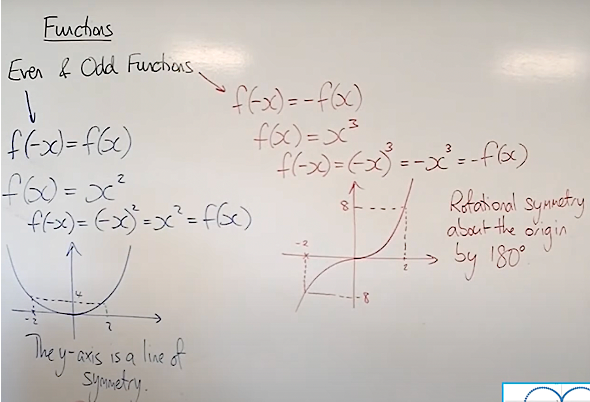 Functions
Even & Odd Functions
f(-x)=f(x)
f(x)=x²
f(-x)=(-x)²=x²=f(x)
4
-2
2
The y-axis is a line of
symmetry.
f(-x)=-f(x)
f(x)=x³
f(-x)=(-x)³=-x³=-f(x)
8
-2
2
-8
Rotational symmetry
about the origin
by 180°